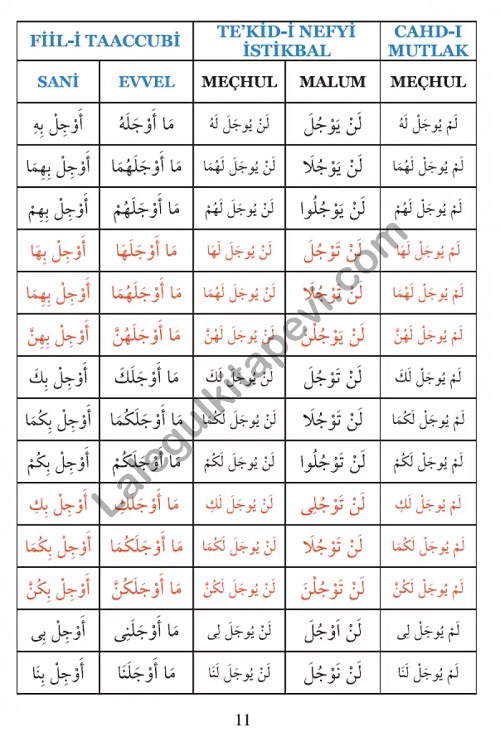 FİİL-İ TAACCUBİ TE’KİD-İ NEFYİ İSTİKBAL CAHD-I MUTLAK
SANİ EVVEL MEÇHUL MALUM MEÇHUL
أَوْجِلْ بِهِ مَا أَوْجَلَهُ لَنْ يُوجَلَ لَهُ لَنْ يَوْجُلَ لَمْ يُوجَلْ لَهُ
أَوْجِلْ بِهِمَا مَا أَوْجَلَهُمَا لَنْ يُوجَلَ لَهُمَا لَنْ يَوْجُلَا لَمْ يُوجَلْ لَهُمَا
أَوْجِلْ بِهِمْ مَا أَوْجَلَهُمْ لَنْ يُوجَلَ لَهُمْ لَنْ يَوْجُلُوا لَمْ يُوجَلْ لَهُمْ
أَوْجِلْ بِهَا مَا أَوْجَلَهَا لَنْ يُوجَلَ لَهَا لَنْ تَوْجُلَ لَمْ يُوجَلْ لَهَا
أَوْجِلْ بِهِمَا مَا أَوْجَلَهُمَا لَنْ يُوجَلَ لَهُمَا لَنْ تَوْجُلَا لَمْ يُوجَلْ لَهُمَا
أَوْجِلْ بِهِنَّ مَا أَوْجَلَهُنَّ لَنْ يُوجَلَ لَهُنَّ لَنْ يَوْجُلْنَ لَمْ يُوجَلْ لَهُنَّ
أَوْجِلْ بِكَ مَا أَوْجَلَكَ لَنْ يُوجَلَ لَكَ لَنْ تَوْجُلَ لَمْ يُوجَلْ لَكَ
أَوْجِلْ بِكُمَا مَا أَوْجَلَكُمَا لَنْ يُوجَلَ لَكُمَا لَنْ تَوْجُلَا لَمْ يُوجَلْ لَكُمَا
أَوْجِلْ بِكُمْ مَا أَوْجَلَكُمْ لَنْ يُوجَلَ لَكُمْ لَنْ تَوْجُلُوا لَمْ يُوجَلْ لَكُمْ
أَوْجِلْ بِكِ مَا أَوْجَلَكِ لَنْ يُوجَلَ لَكِ لَنْ تَوْجُلِى لَمْ يُوجَلْ لَكِ
أَوْجِلْ بِكُمَا مَا أَوْجَلَكُمَا لَنْ يُوجَلَ لَكُمَا لَنْ تَوْجُلَا لَمْ يُوجَلْ لَكُمَا
أَوْجِلْ بِكُنَّ مَا أَوْجَلَكُنَّ لَنْ يُوجَلَ لَكُنَّ لَنْ تَوْجُلْنَ لَمْ يُوجَلْ لَكُنَّ
أَوْجِلْ بِى مَا أَوْجَلَنِى لَنْ يُوجَلَ لِى لَنْ اَوْجُلَ لَمْ يُوجَلْ لِى
أَوْجِلْ بِنَا مَا أَوْجَلَنَا لَنْ يُوجَلَ لَنَا لَنْ نَوْجُلَ لَمْ يُوجَلْ لَنَا
Lalegulkitapevi.com
11